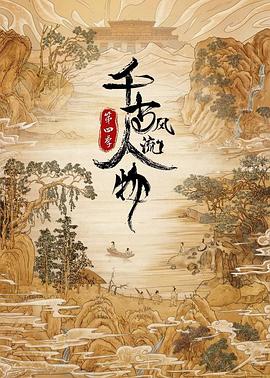 千古风流人物
第四季